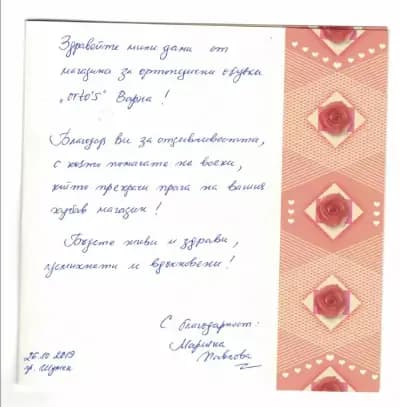 Здравейте мили дами от
магазина за ортопедични обувки
„orto's" Варна!
Благодаря Ви за отзивчивостта,
с която помагате на всеки,
който прекрачи прага на вашия
хубав магазин!
Бъдете живи и здрави,
усмихнати и вдъхновени!
С благодарност:
Марияна
Павлова
26.10.2019
гр. Шумен